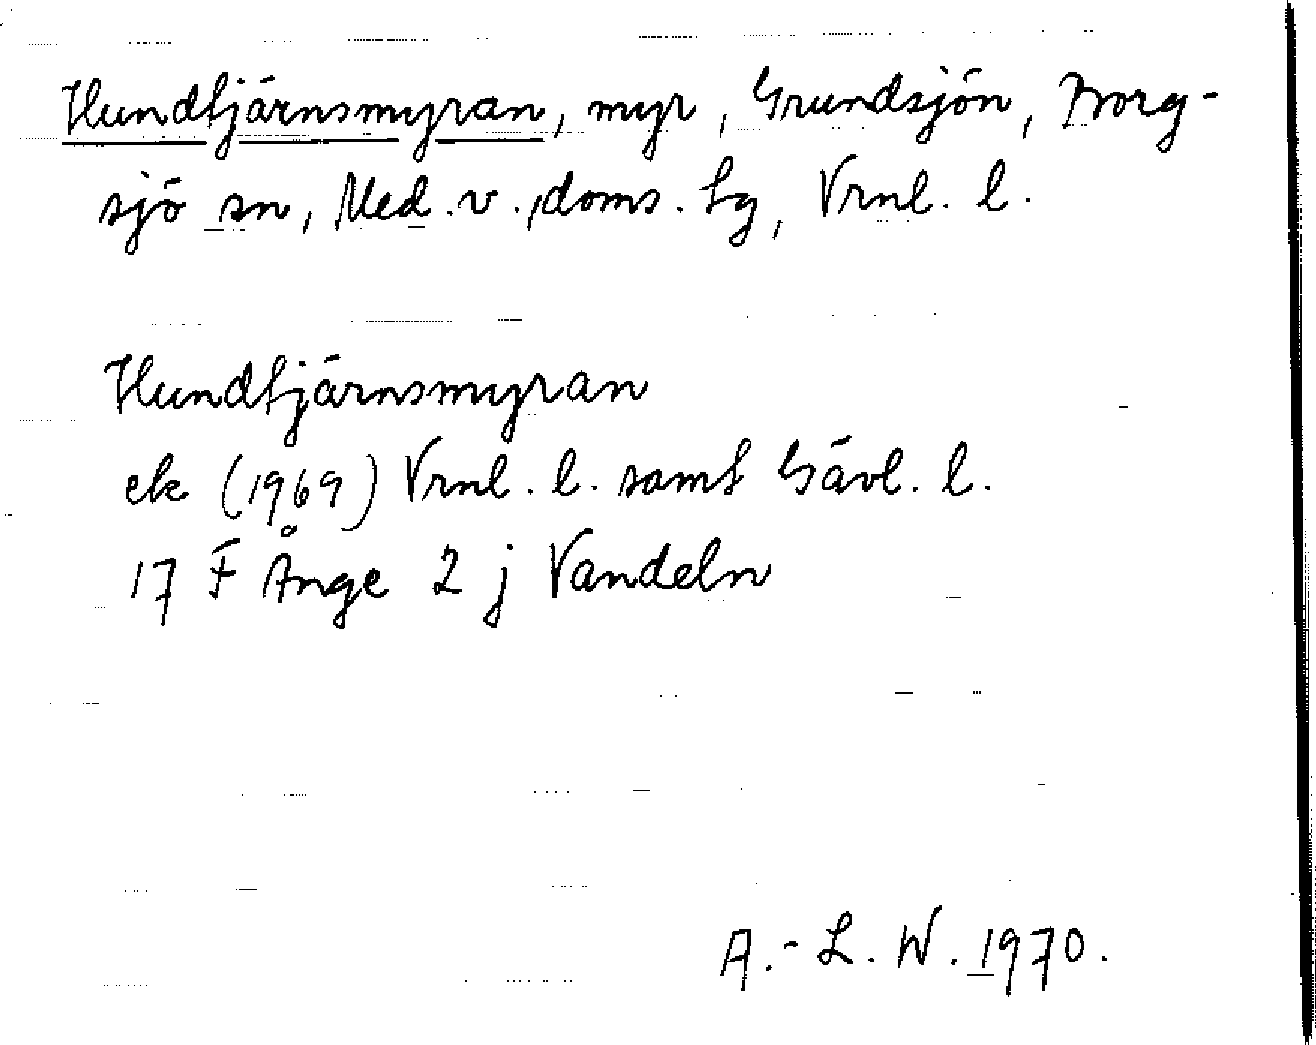 Hundtjärnsmyran, myr, Grundsjön, Borg-
sjö sn, Med. v., doms. lg, Vrnl. l.
Hundtjärnsmyran
ek (1969) Vrnl. l. samt Gävl. l.
17 F Ånge 2 j Vandeln
A.-L. W. 1970.